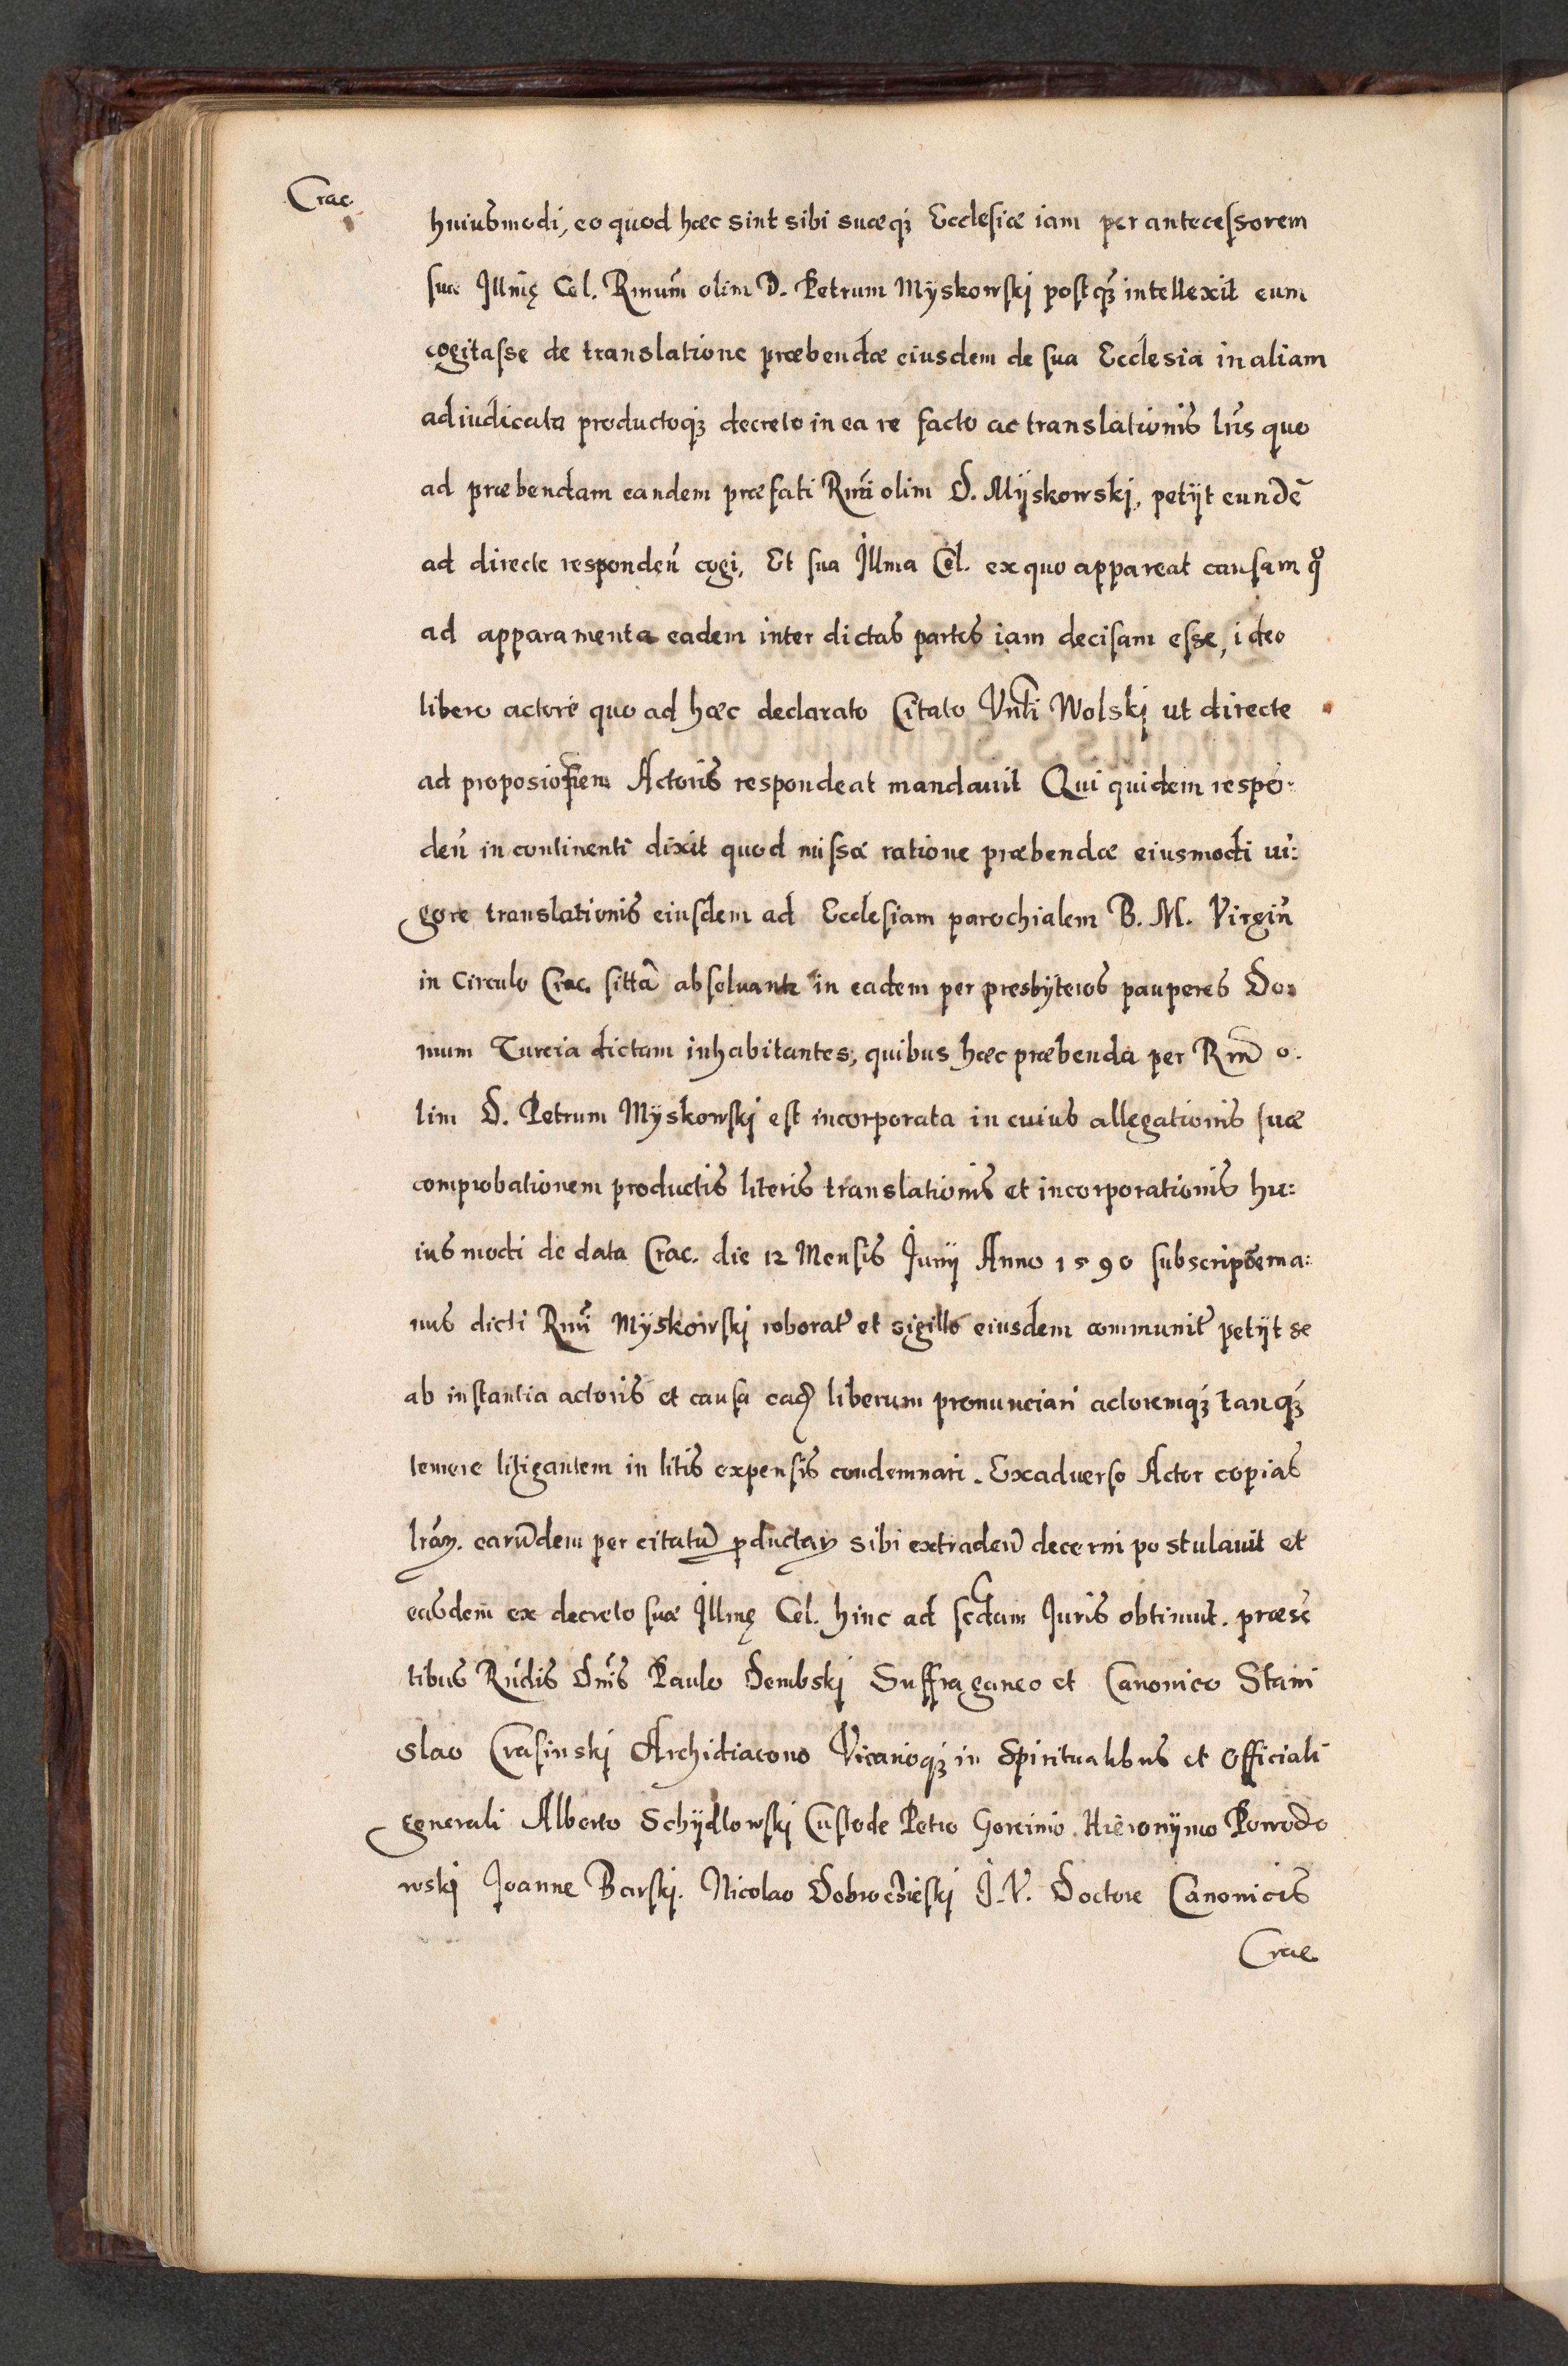 Crac.
huiusmodi, eo quod hæc sint sibi suæq; Ecclesiæ iam per antecessorem
suæ Illmę Cel. Rmum̄ olim D. Petrum Myskowski postq̃ intellexit eum
cogitasse de translatione præbendæ eiusdem de sua Ecclesia in aliam
adiudicata productoq; decreto in ea re facto ac translationis lr̃is quo
ad præbendam eandem præfati Rmi olim D. Myskowski, petijt eundē
ad directe responden̄ cogi, Et sua Illma Cel. ex quo appareat causam qº
ad apparamenta eadem inter dictas partes iam decisam esse, ideo
libero actore quo ad hæc declarato Citato Vnlt̃i Wolski ut directe
ad propositionem Actoris respondeat mandauit Qui quidem respō:
den̄ in continenti dixit quod missæ ratione præbendæ eiusmodi ui:
gore translationis eiusdem ad Ecclesiam parochialem B. M. Virgin̄
in Circulo Crac. sittā absoluantr in eadem per presbyteros pauperes Do:
mum Turcia dictam inhabitantes, quibus hæc præbenda per Rm̄ o:
lim D. Petrum Myskowski est incorporata in cuius allegationis suæ
comprobationem productis literis translationis et incorporationis hu:
iusmodi de data Crac. die 12 Mensis Junij Anno 1590 subscriptōe ma:
nus dicti Rmi Myskowski roborat̃ et sigillo eiusdem communit̃ petijt se
ab instantia actoris et causa eadẽ liberum pronunciari actoremq; tanq̃
temere litigantem in litis expensis condemnari. Exaduerso Actor copias
lrãꝝ. earūdem per citatū ꝓductaꝝ sibi extraden̄ decerni postulauit et
easdem ex decreto suæ Illmę Cel. hinc ad scdam Juris obtinuit. præsē
tibus Rñdis Dñis Paulo Dembski Suffraganeo et Canonico Stani
slao Crasinski Archidiacono Vicarioq; in Spiritualibus et Officiali
generali Alberto Schydlowski Custode Petro Gorcinio. Hieronymo Powodo
wski Joanne Barski. Nicolao Dobrocieski J. V. Doctore Canonicis
Crac